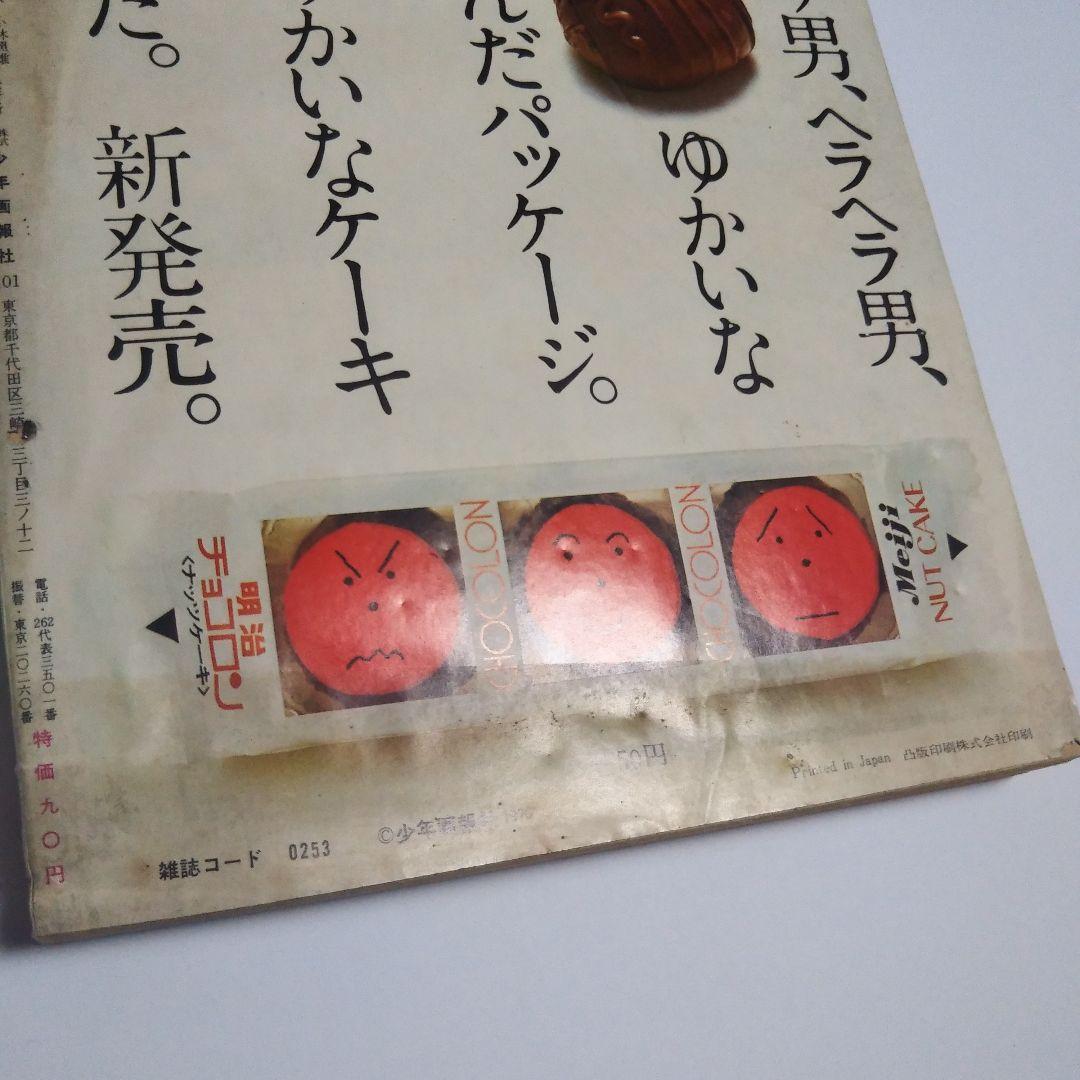 男、ヘラヘラ男、
ゆかいな
んだパッケージ。
かいなケーキ
た。新発売。
明治
チョコロン
〈ナッツケーキ〉
CHOCOLON
CHOCOLON
Meiji
NUT CAKE
50円
Printed in Japan 凸版印刷株式会社印刷
©少年画報
雑誌コード 0253
少年画報社
01 東京都千代田区三崎 三丁目三ノ十二
電話・262代表三五〇一番
振替・東京二〇二六〇番
特価九〇円